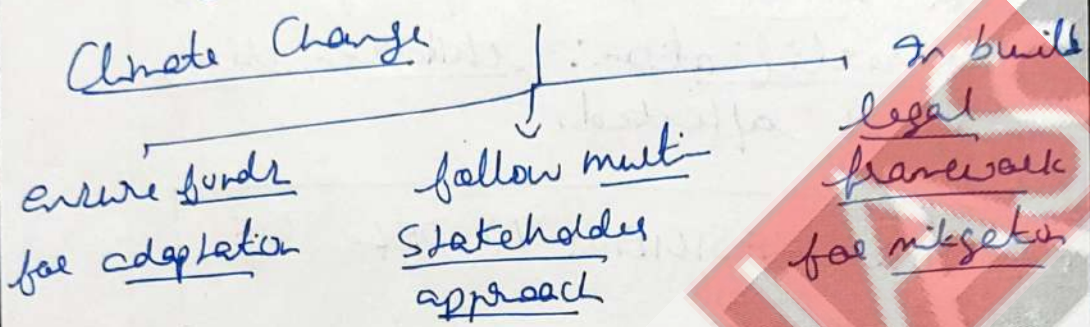 Climate Change
ensure funds
for adaptation
follow multi
Stakeholder
approach
In build
legal
framework
for mitigation
IAS